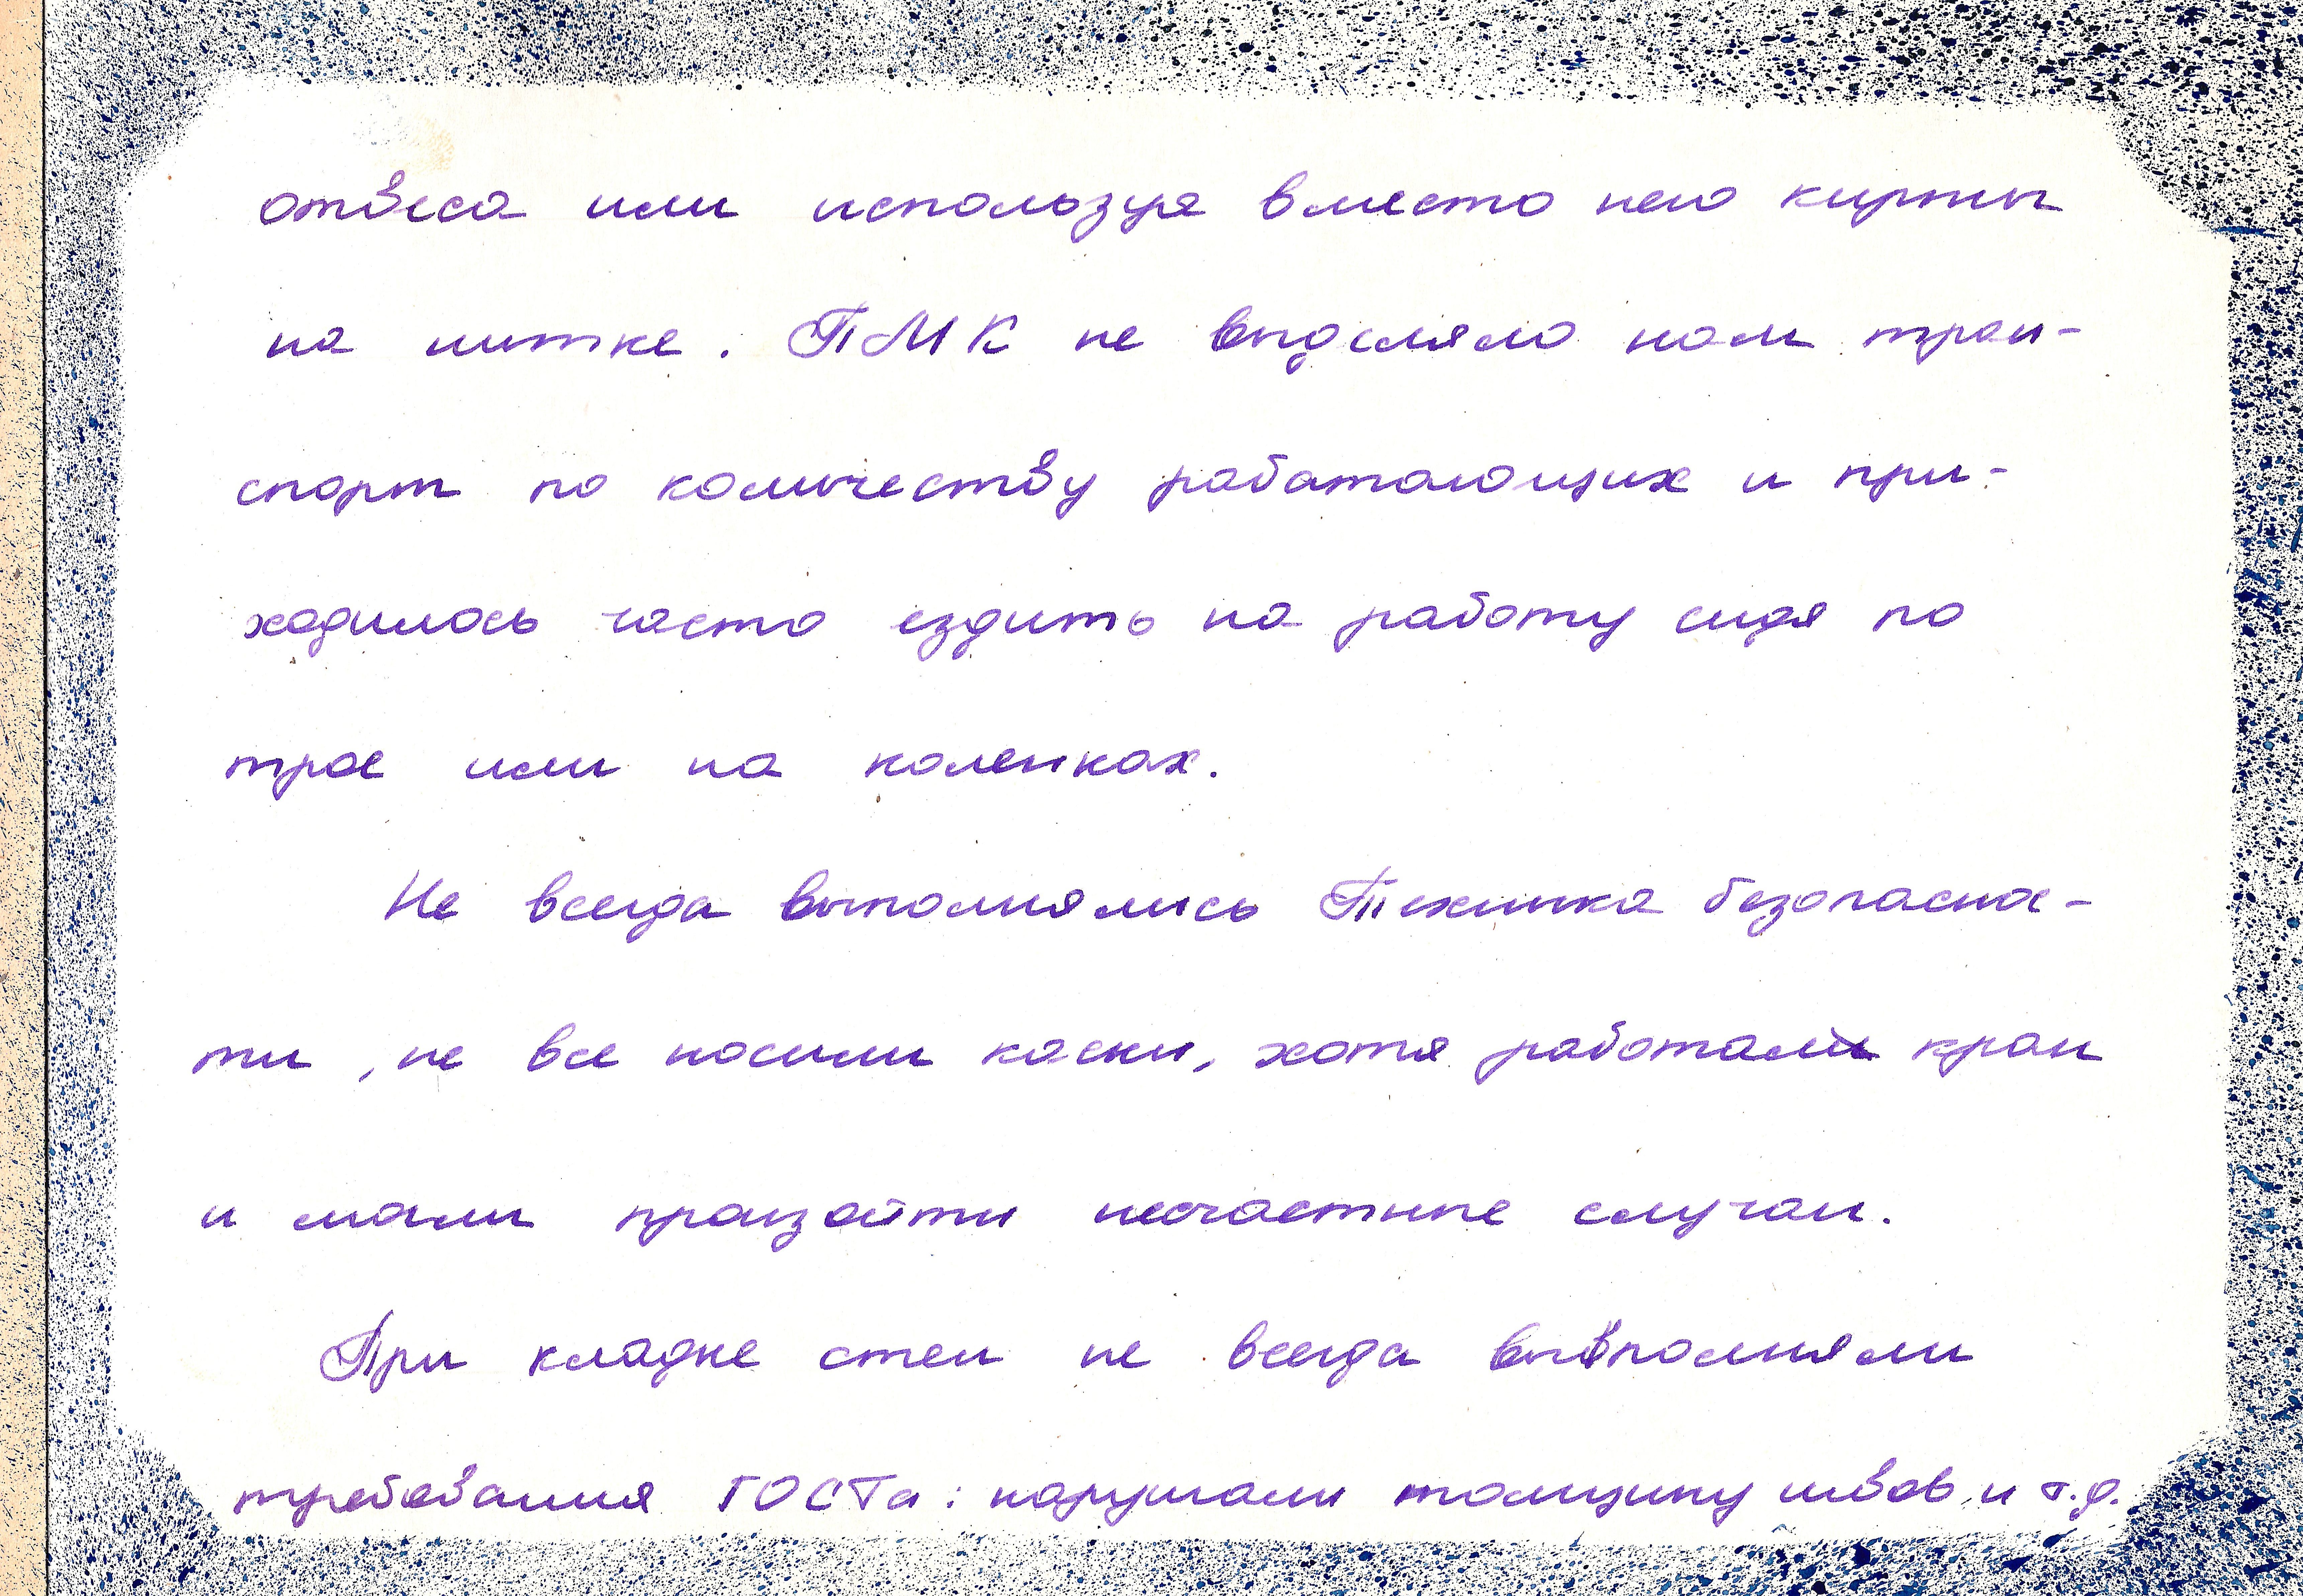 отвеса или используя вместо него кирпич
на нитке. ПМК не выделяло нам тран-
спорт по количеству работающих и при-
ходилось часто ездить на работу сидя по
трое или на коленках.
Не всегда выполнялись Техника безопаснос-
ти, не все носили каски, хотя работали кран
и могли произойти несчастные случаи.
При кладке стен не всегда выполняли
требования ГОСТа: нарушали толщину швов и т.д.